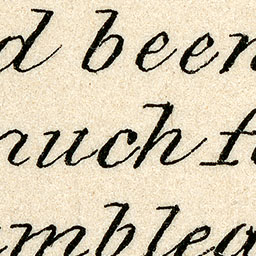 d been
much f
mbled